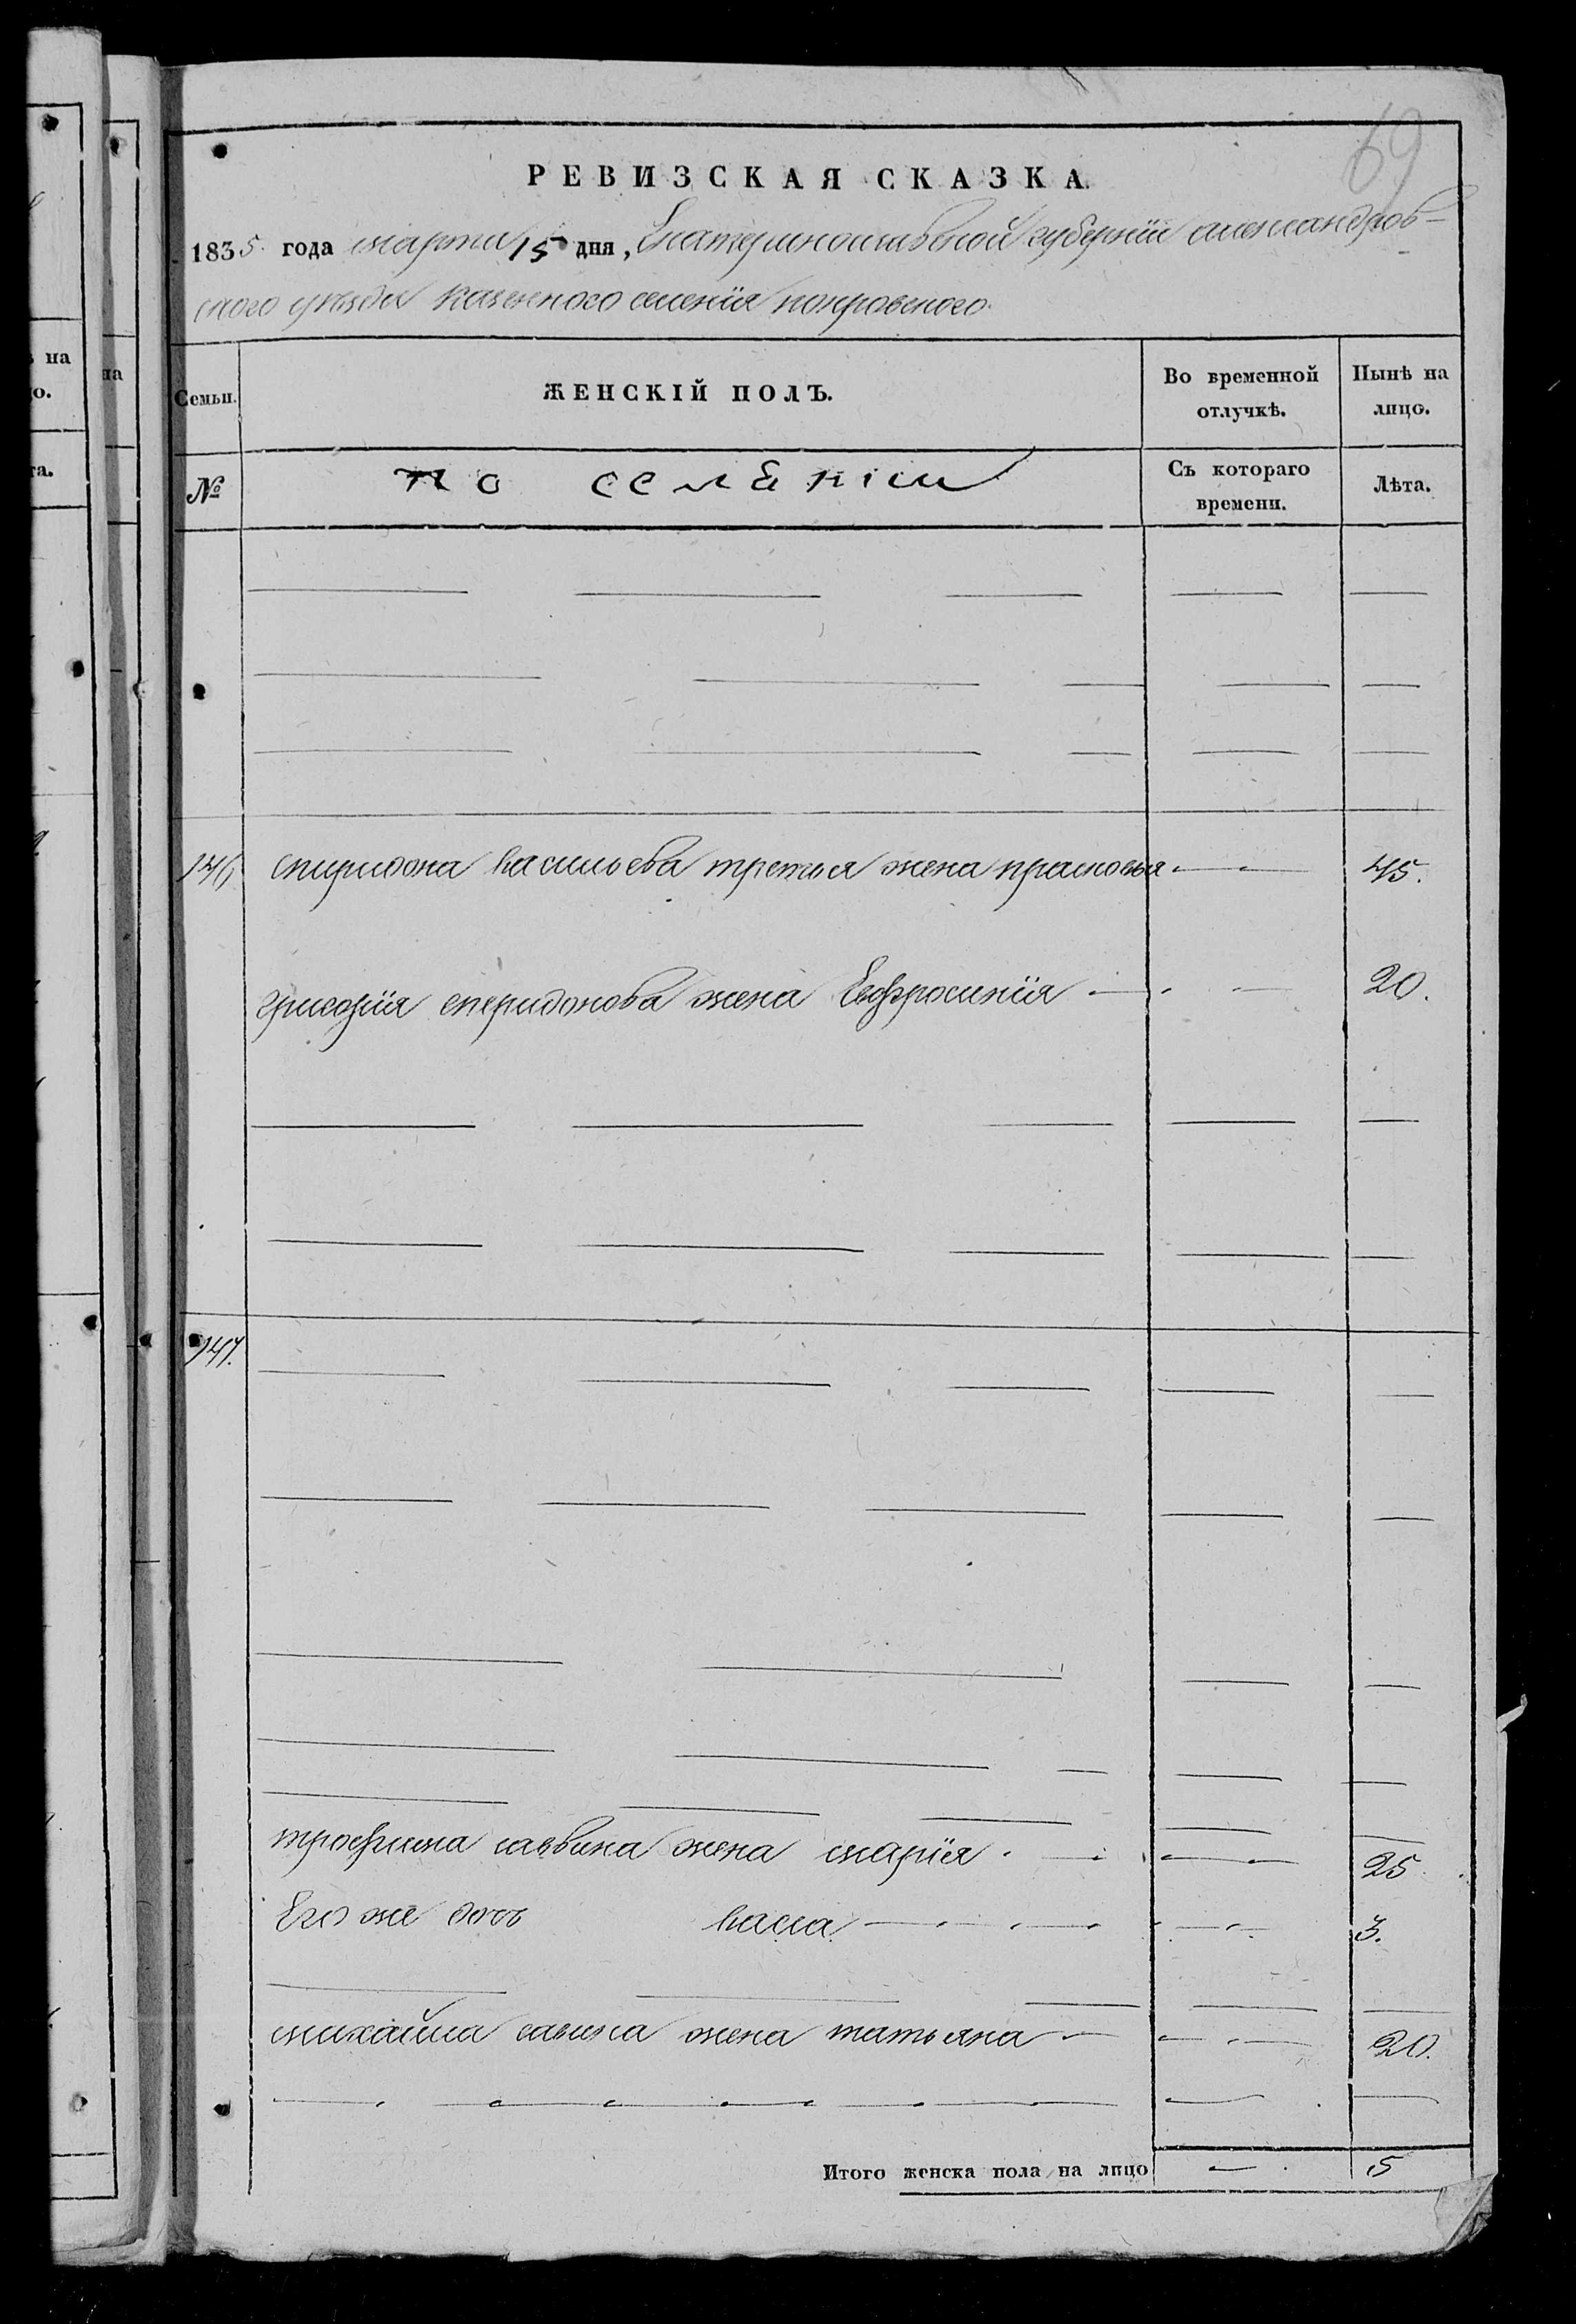 69
РЕВИЗСКАЯ СКАЗКА.
1835 года марта 15 дня, Екатеринославской губернии александров-
ского уѣзда казенного селения покровского
Семьи. ЖЕНСКІЙ ПОЛЪ. Во временной отлучкѣ. Нынѣ на лицо.
№ по селѣнию Съ котораго времени. Лѣта.
146 спиридона васильева третья жена прасковья 45.
григория спиридонова жена Евфросиния 20.
147.
трофима саввина жена мария 25
Его же дочь васса 3.
михайла савина жена татьяна 20.
Итого женска пола на лицо 5
на
о.
та.
на